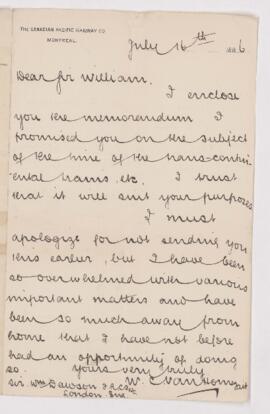 THE CANADIAN PACIFIC RAILWAY CO.
MONTREAL.
July 16th 1886
Dear Sir William.
I enclose
you the memorandum I
promised you on the subject
of the time of the trans-conti-
nental trains, etc. I trust
that it will suit your purposes
I must
apologize for not sending you
this earlier, but I have been
so overwhelmed with various
important matters and have
been so much away from
home that I have not before
had an opportunity of doing
so. Yours very truly
W. C. Van Horne
Sir. Wm Dawson
London. Eng